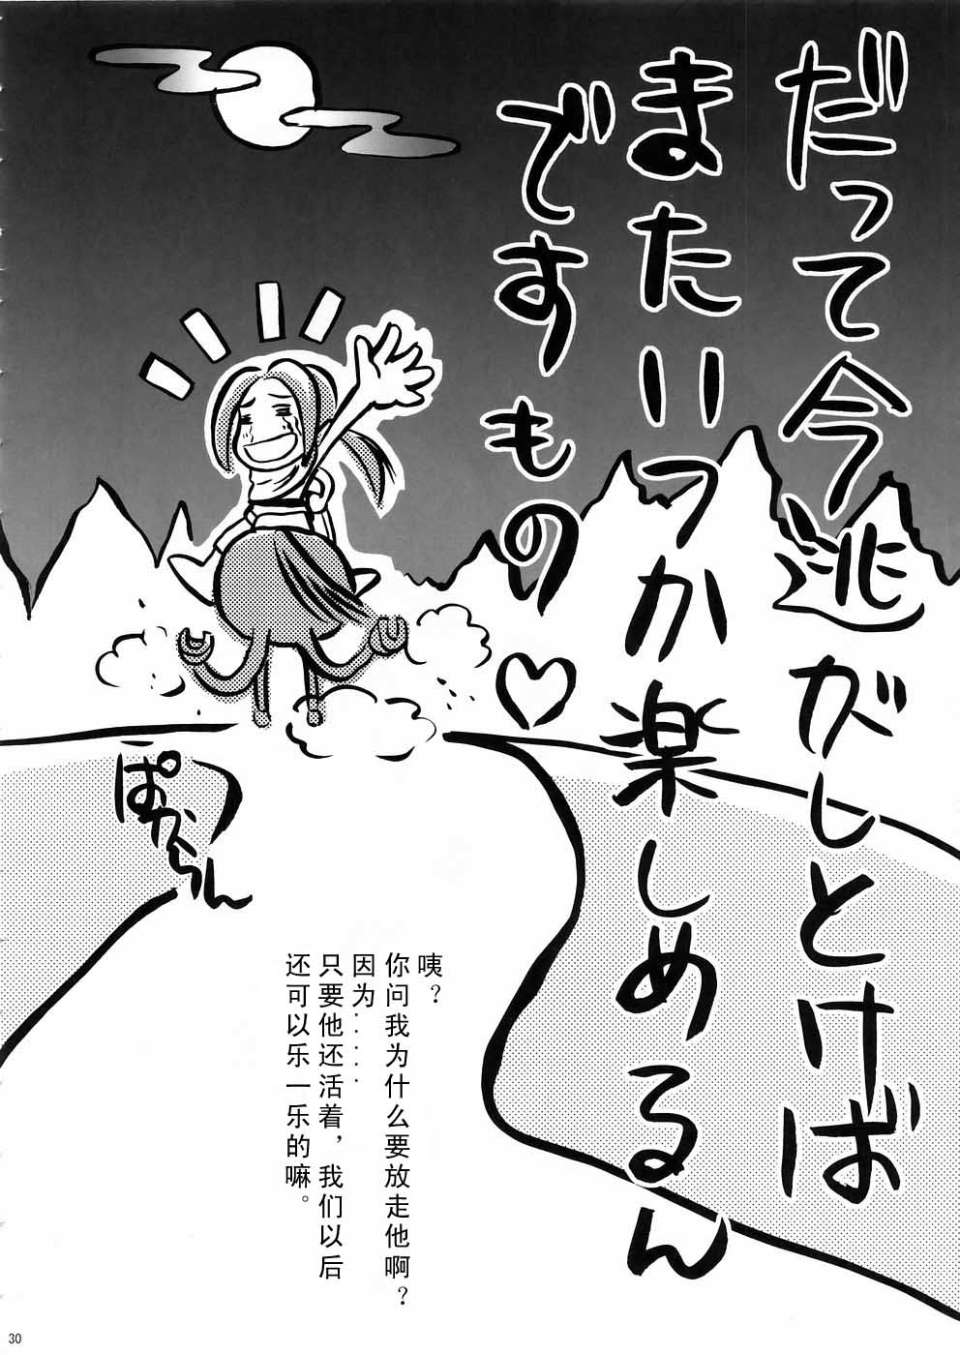 だって今逃がしとけば
またいつか楽しめるん
ですもの♡
ぱからん
咦？
你问我为什么要放走他啊？
因为……
只要他还活着，我们以后
还可以乐一乐的嘛。
30